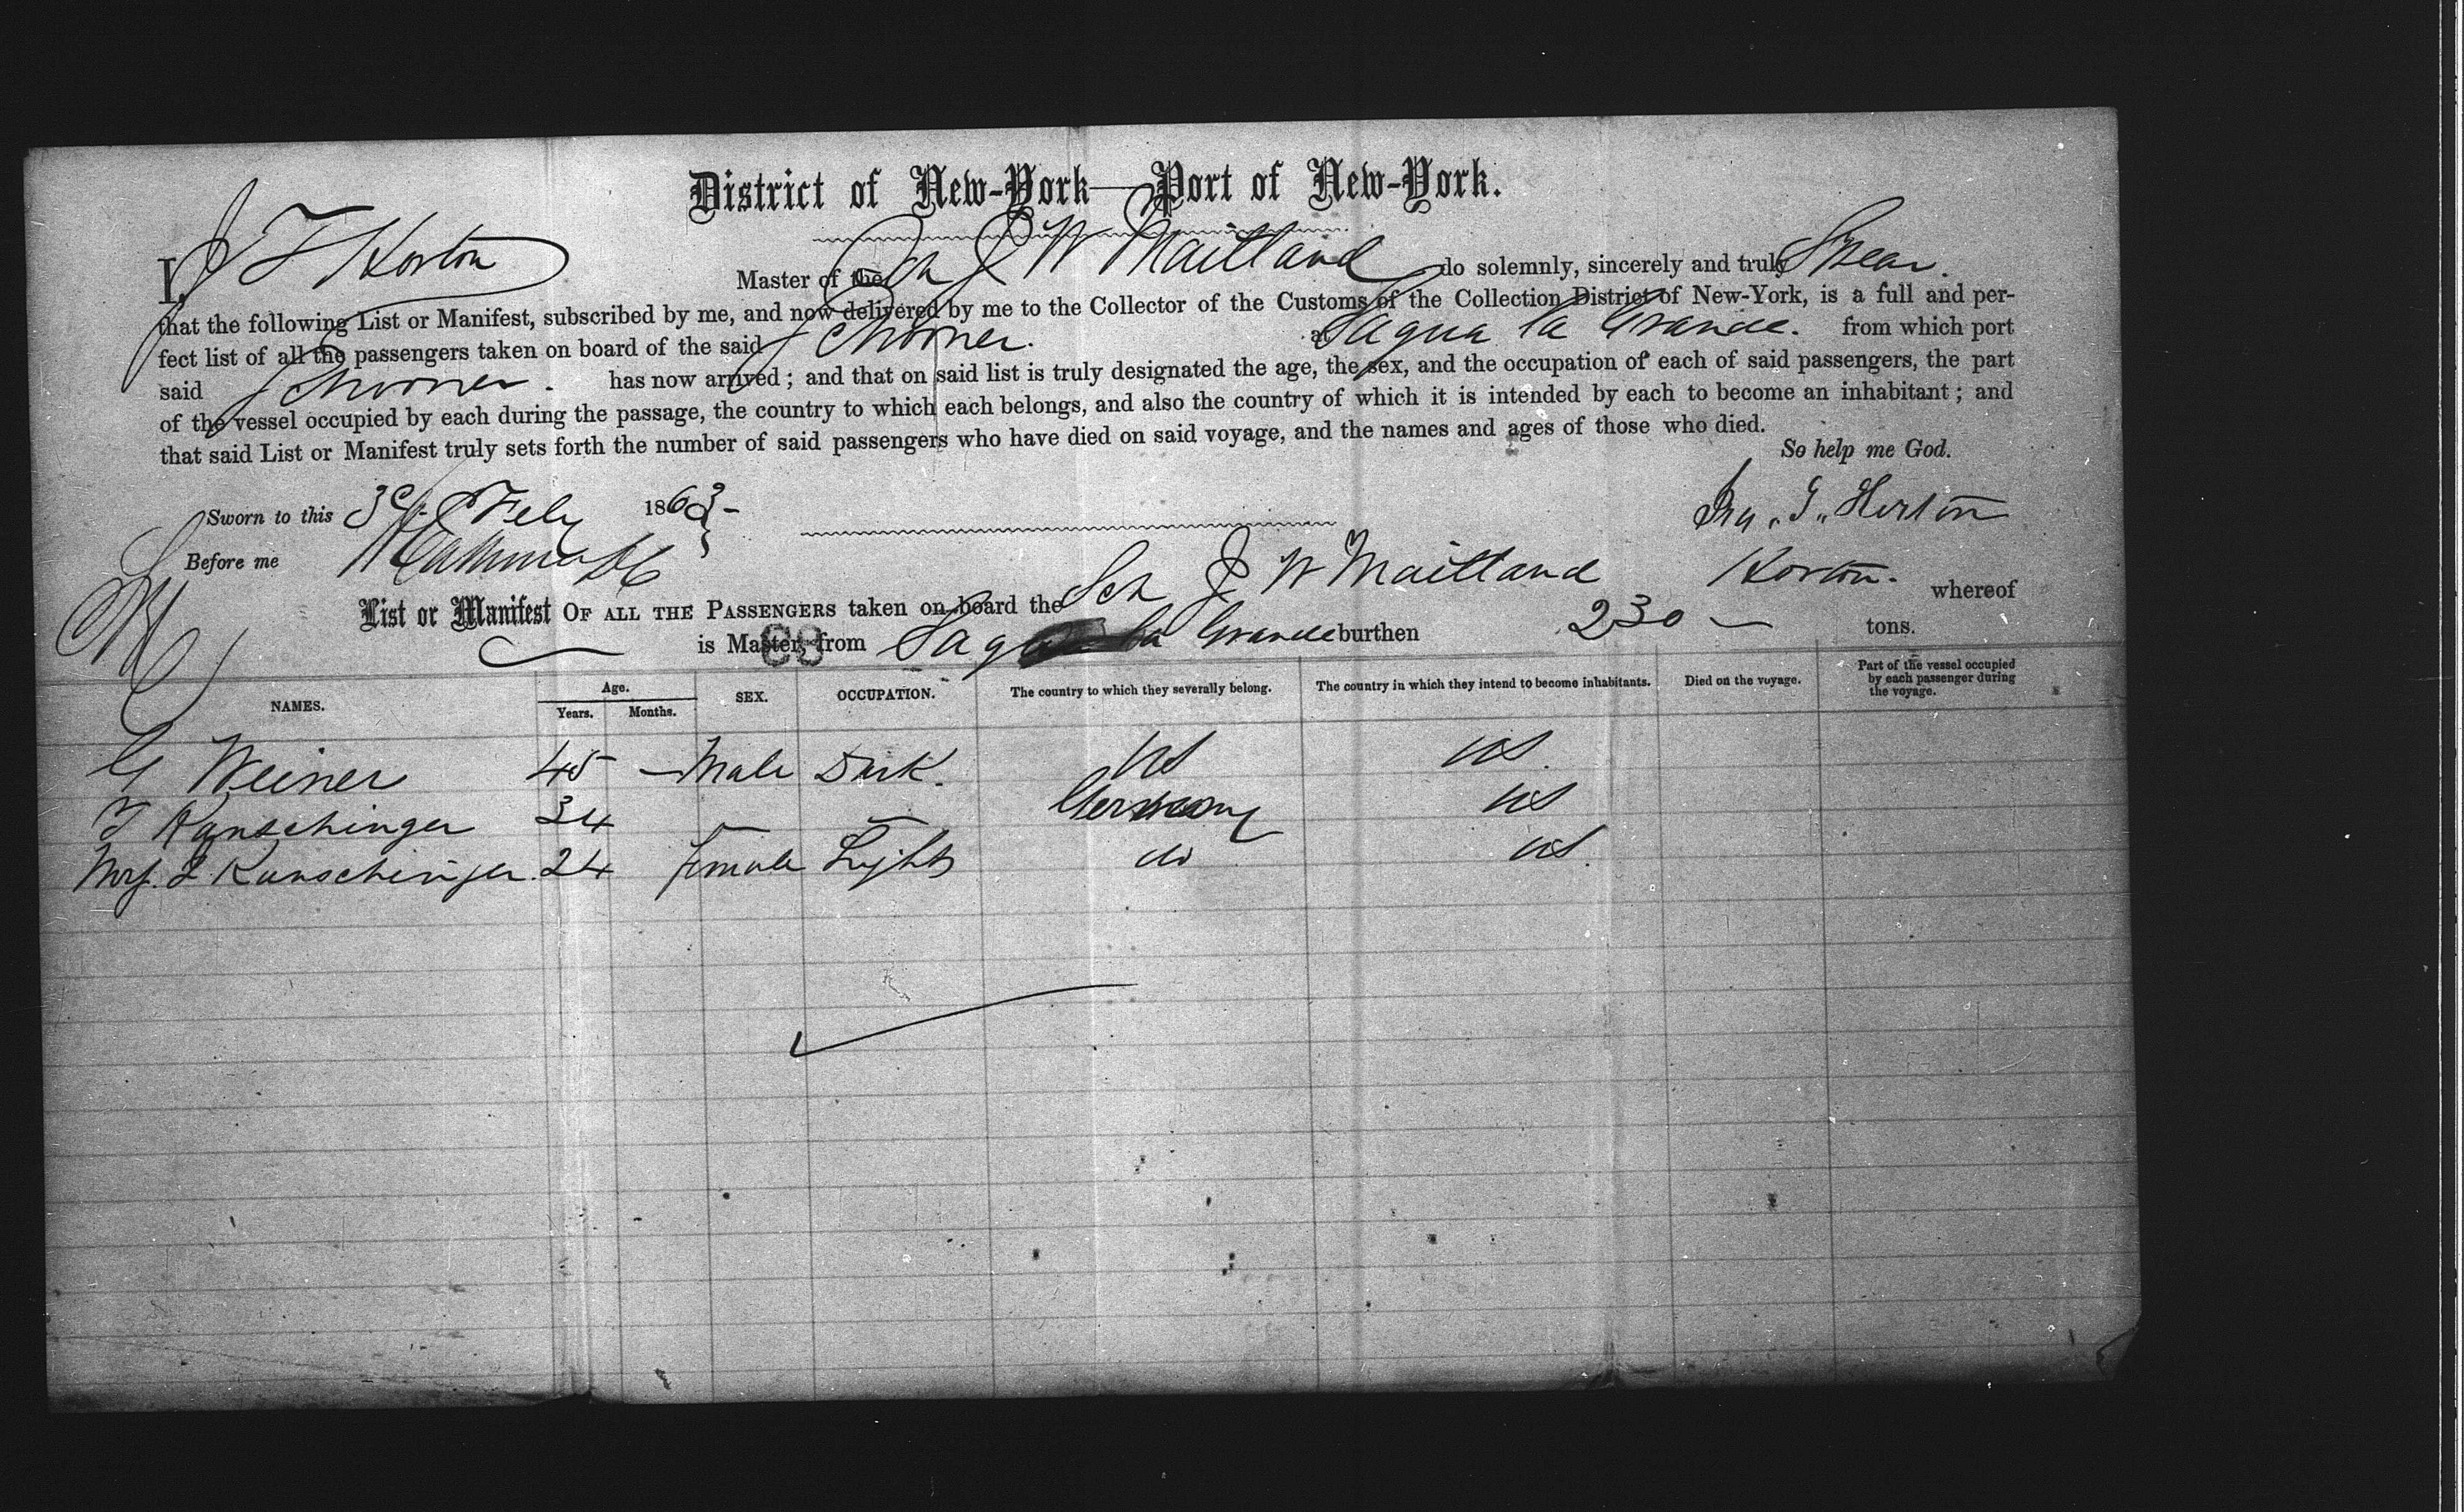 District of New-York—Port of New-York.
I, J F Horton Master of the Sch J W Maitland do solemnly, sincerely and truly Swear.
that the following List or Manifest, subscribed by me, and now delivered by me to the Collector of the Customs of the Collection District of New-York, is a full and per-
fect list of all the passengers taken on board of the said Schooner. at Sagua la Grande. from which port
said Schooner. has now arrived; and that on said list is truly designated the age, the sex, and the occupation of each of said passengers, the part
of the vessel occupied by each during the passage, the country to which each belongs, and also the country of which it is intended by each to become an inhabitant; and
that said List or Manifest truly sets forth the number of said passengers who have died on said voyage, and the names and ages of those who died.
So help me God.
Sworn to this 3d Feby 1863 -
Ira, G, Horton
Before me
List or Manifest OF ALL THE PASSENGERS taken on board the Sch J W Maitland Horton. whereof
is Master, from Sagua la Grande burthen 230 — tons.
NAMES. Age. Years. Months. SEX. OCCUPATION. The country to which they severally belong. The country in which they intend to become inhabitants. Died on the voyage. Part of the vessel occupied by each passenger during the voyage.
G Weiner 45 — Male Dark. US US.
F Kanschinger 34 — — Germany US
Mrs. F Kanschinger. 24 female Light do US.